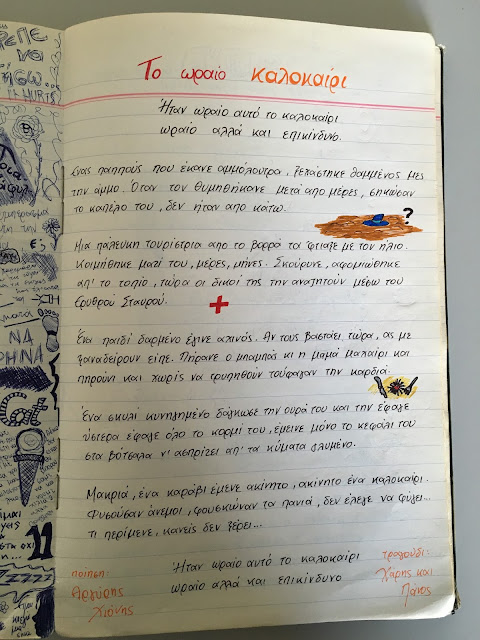 Το ωραίο καλοκαίρι
Ήταν ωραίο αυτό το καλοκαίρι
ωραίο αλλά και επικίνδυνο.
Ένας παππούς που έκανε αμμόλουτρα, ξεχάστηκε θαμμένος μες
την άμμο. Όταν τον θυμηθήκανε μετά από μέρες, σηκώσαν
το καπέλο του, δεν ήταν από κάτω.
?
Μια πάλευκη τουρίστρια απο το βορρά τα 'φτιαξε με τον ήλιο.
Κοιμήθηκε μαζί του, μέρες, μήνες. Σκούρυνε, αφομιώθηκε
απ' το τοπίο, τώρα οι δικοί της την αναζητούν μέσω του
Ερυθρού Σταυρού.
Ένα παιδί δαρμένο έγινε αχινός. Αν τους βαστάει τώρα, ας με
ξαναδείρουν είπε. Πήρανε ο μπαμπάς κι η μαμά μαχαίρι και
πηρούνι και χωρίς να τρυπηθούν τούφαγαν την καρδιά.
Ένα σκυλί κυνηγημένο δάγκωσε την ουρά του και την έφαγε
ύστερα έφαγε όλο το κορμί του, έμεινε μόνο το κεφάλι του
στα βότσαλα ν' ασπρίζει απ' τα κύματα γλυμένο.
Μακριά, ένα καράβι έμενε ακίνητο, ακίνητο ένα καλοκαίρι.
Φυσούσαν άνεμοι, φουσκώναν τα πανιά, δεν έλεγε να φύγει...
τι περίμενε, κανείς δεν ξέρει...
Ήταν ωραίο αυτό το καλοκαίρι
ωραίο αλλά και επικίνδυνο
ποίηση:
Αργύρης
Χιόνης
τραγούδι:
Χάρης και
Πάνος
ΡΕΠΕ
να
HURTS
ΝΑ
at
11
ZZZZ